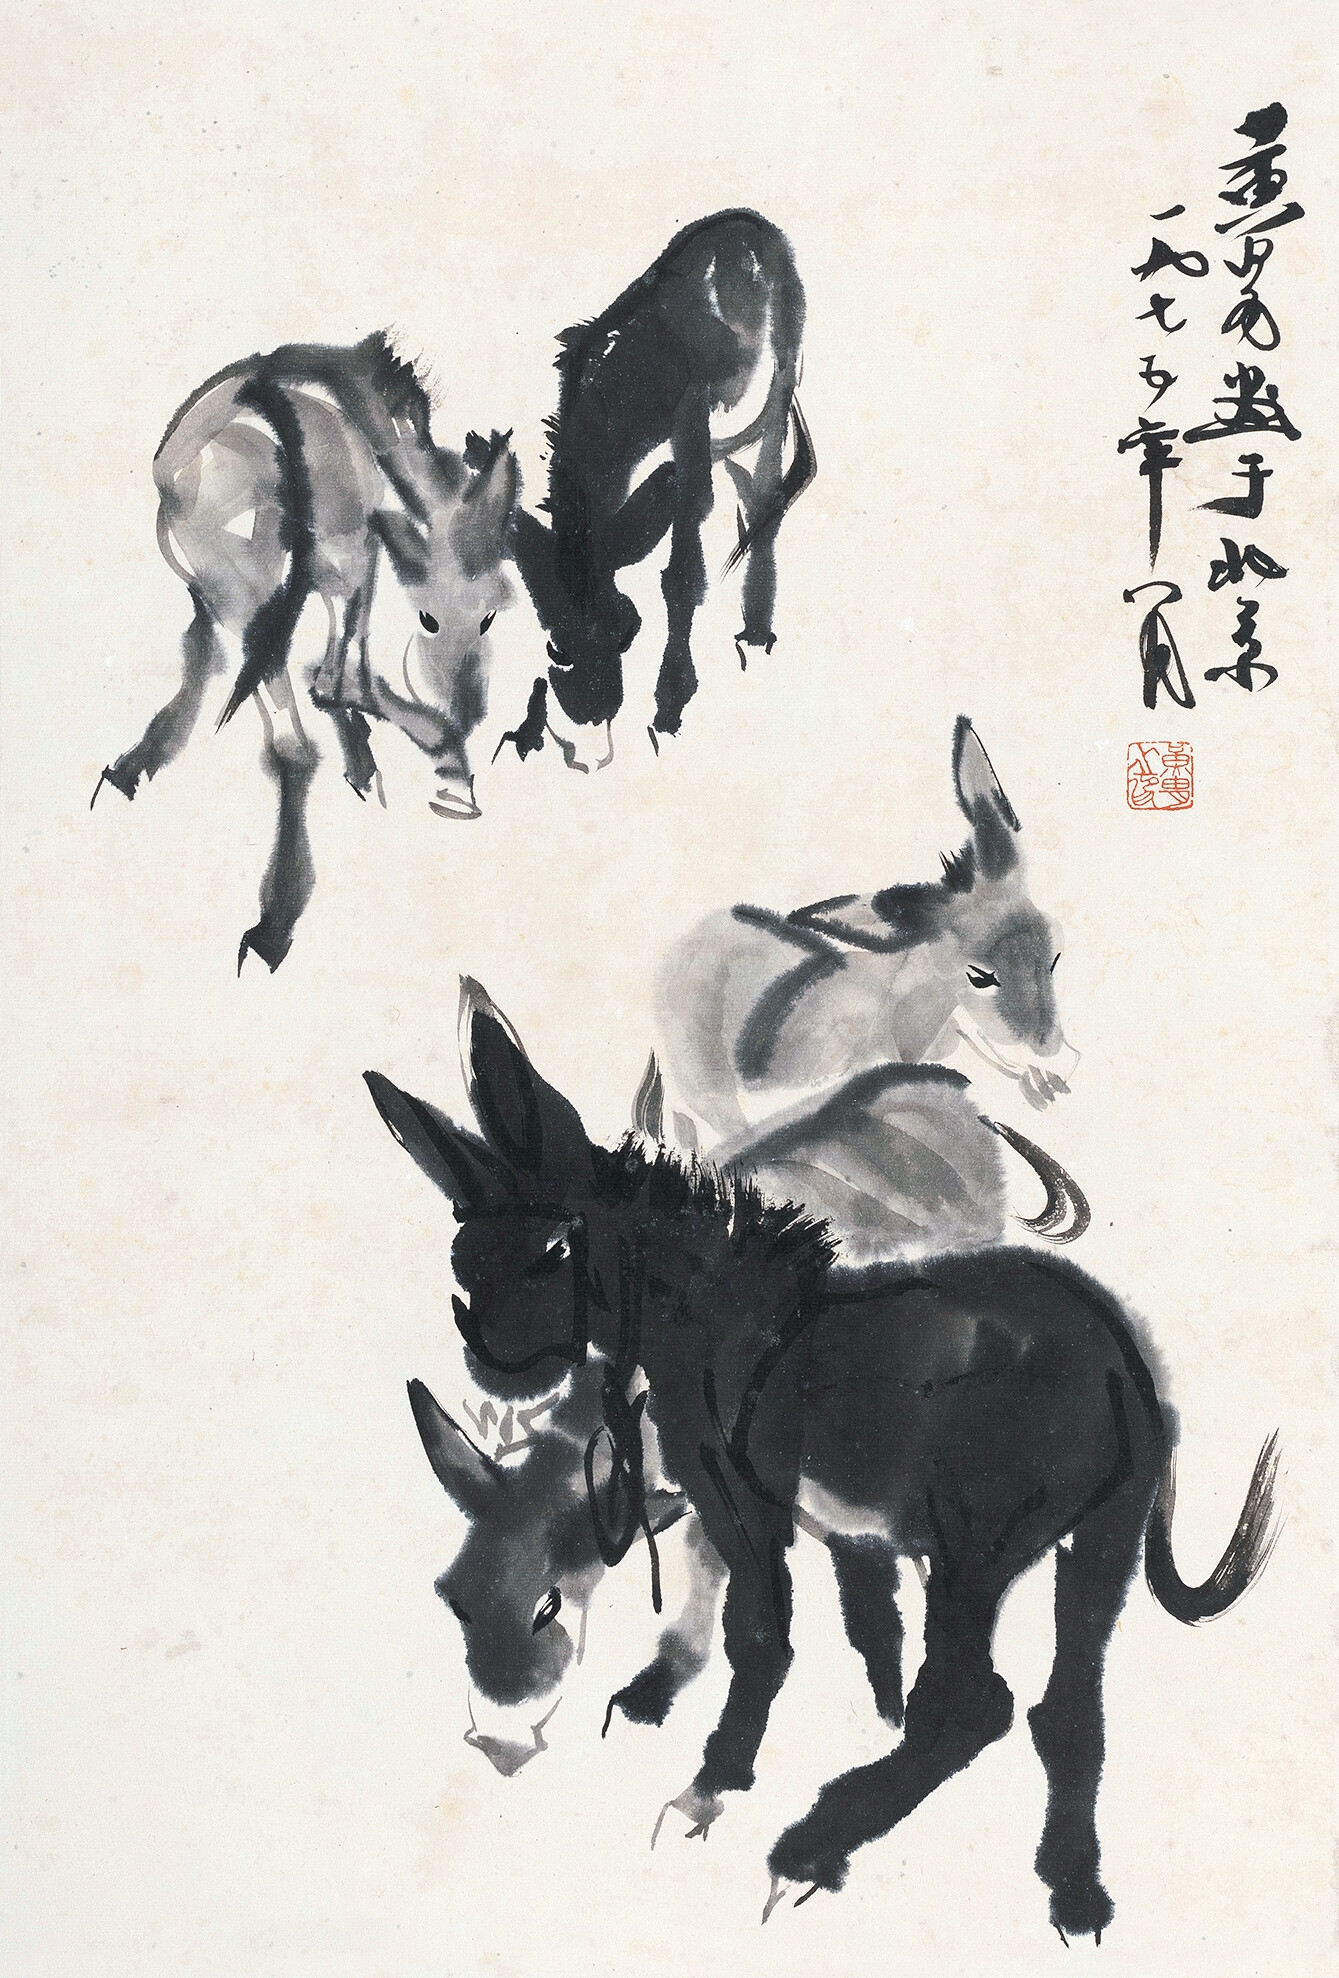 黄胄画于北京
一九七五年八月
黄胄之印